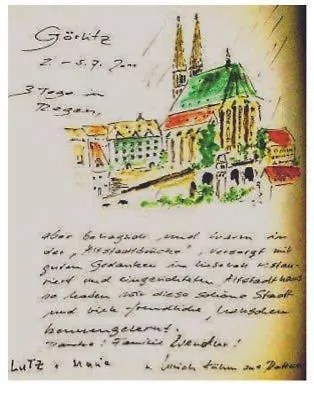 Görlitz
2. - 5. 7.
3 Tage in
Regen,
aber behaglich und warm in
der "Altstadtbrücke", versorgt mit
guten Gedanken im liebevoll restau-
riert und eingerichteten Altstadthaus
so haben wir diese schöne Stadt
und viele freundliche Menschen
kennengelernt.
Danke! Familie
Lutz +